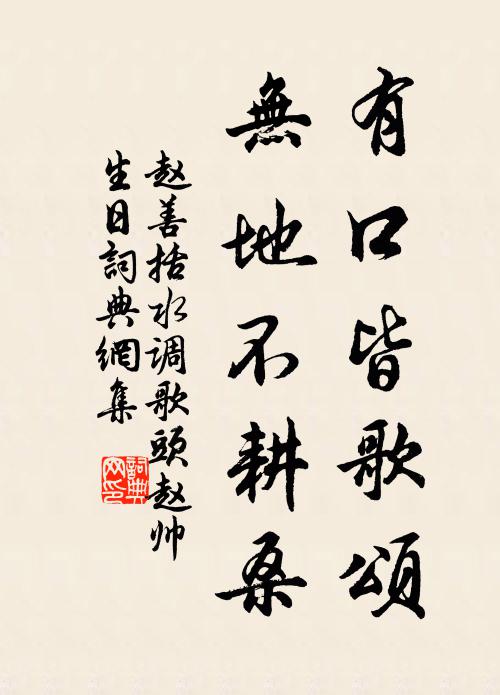 有口皆歌頌
無地不耕桑
赵善括水调歌頭赵帅
生日詞典網集
詞典
网印